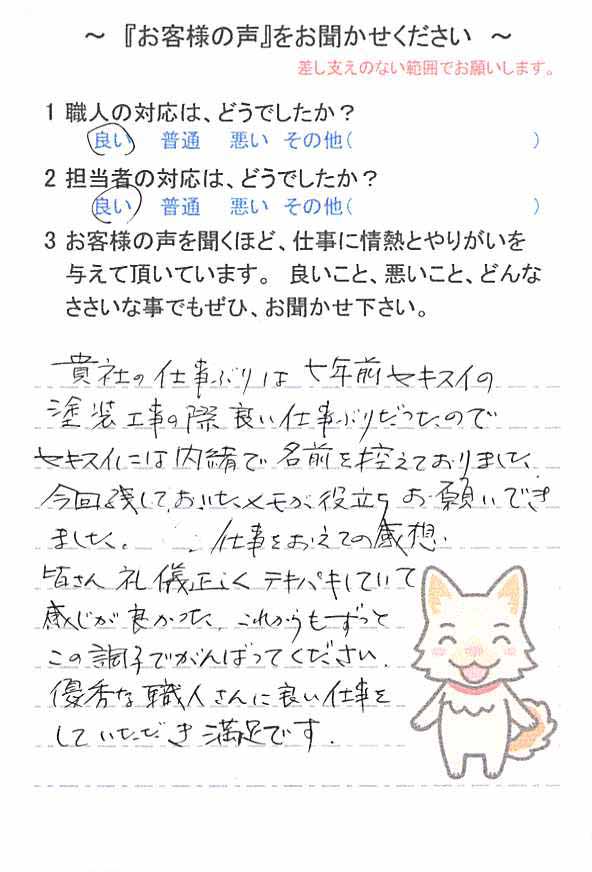 ～ 『お客様の声』をお聞かせください ～
差し支えのない範囲でお願いします。
1 職人の対応は、どうでしたか？
良い 普通 悪い その他( )
2 担当者の対応は、どうでしたか？
良い 普通 悪い その他( )
3 お客様の声を聞くほど、仕事に情熱とやりがいを
与えて頂いています。 良いこと、悪いこと、どんな
ささいな事でもぜひ、お聞かせ下さい。
貴社の仕事ぶりは七年前セキスイの
塗装工事の際良い仕事ぶりだったので
セキスイには内緒で名前を控えておりました、
今回残しておいたメモが役立ちお願いでき
ました。 仕事をおえての感想、
皆さん礼儀正しくテキパキしていて
感じが良かった、これからもずっと
この調子でがんばってください、
優秀な職人さんに良い仕事を
していただき満足です.